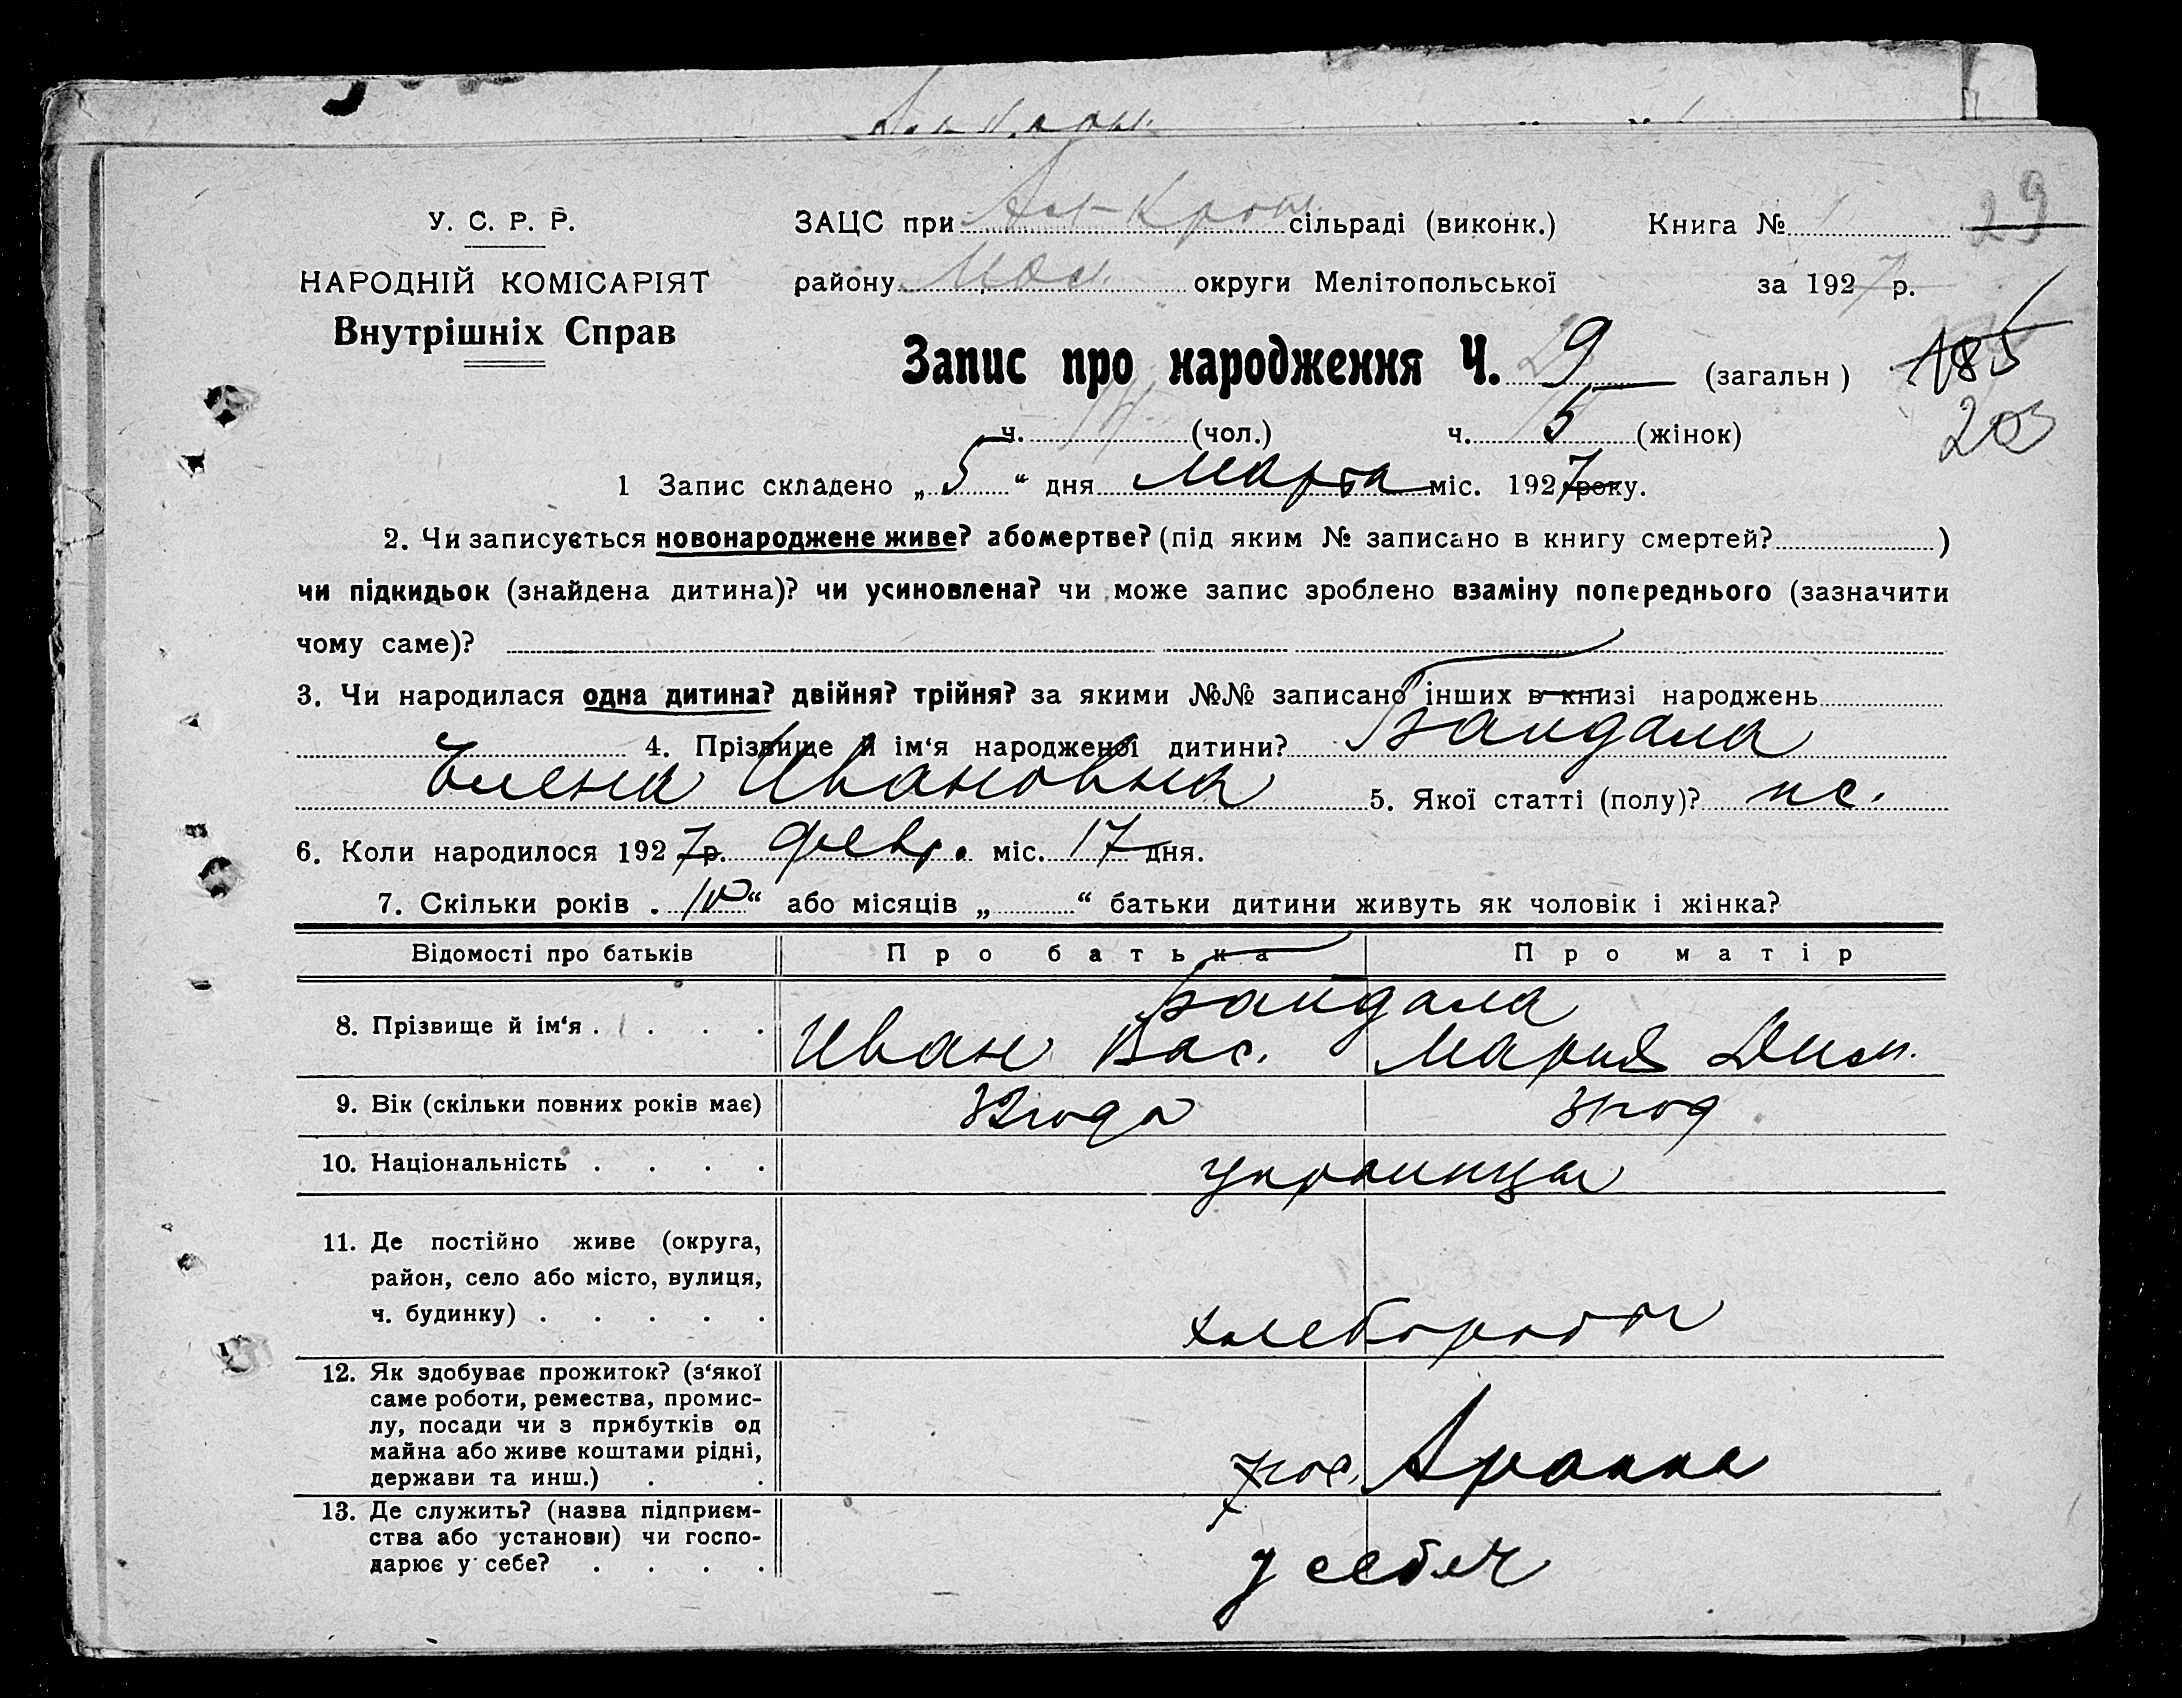 У. С. Р. Р.
НАРОДНІЙ КОМІСАРІЯТ
Внутрішніх Справ
ЗАЦС при сільраді (виконк.) Книга № 1 29
району округи Мелітопольської за 1927 р.
Запис про народження Ч. 9 (загальн) 185
203
ч. (чол.) ч. 5 (жінок)
1 Запис складено „5“ дня Марта міс. 1927 року.
2. Чи записується новонароджене живе? або мертве? (під яким № записано в книгу смертей? )
чи підкидьок (знайдена дитина)? чи усиновлена? чи може запис зроблено взаміну попереднього (зазначити
чому саме)?
3. Чи народилася одна дитина? двійня? трійня? за якими №№ записано інших в книзі народжень
4. Прізвище й ім‘я народженої дитини? Байдала
Елена Ивановна 5. Якої статті (полу)?
6. Коли народилося 1927 р. февр. міс. 17 дня.
7. Скільки років . 10“ або місяців „ “ батьки дитини живуть як чоловік і жінка?
Відомості про батьків Про батька Про матір
8. Прізвище й ім‘я . . . . Байдала
Иван Вас. Мария Дим.
9. Вік (скільки повних років має) 32 года 31 год
10. Національність . . . . украинцы
11. Де постійно живе (округа,
район, село або місто, вулиця,
ч. будинку) . . . . . хлеборобы
12. Як здобуває прожиток? (з‘якої
саме роботи, ремества, промис-
лу, посади чи з прибутків од
майна або живе коштами рідні,
держави та инш.) . .
13. Де служить? (назва підприєм-
ства або установи) чи госпо-
дарює у себе? . . . . у себя